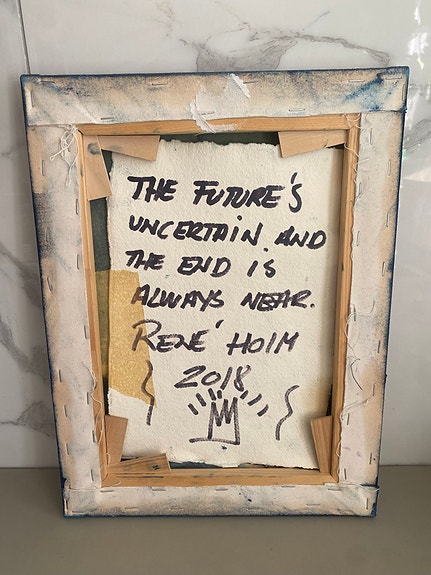 THE FUTURE'S
UNCERTAIN AND
THE END IS
ALWAYS NEAR.
RENÉ HOLM
2018